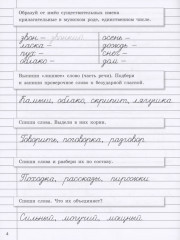 Образуй от имён существительных имена
прилагательные в мужском роде, единственном числе.
звон – звонкий
ласка –
пух –
облако –
осень –
дождь –
снег –
дом –
Выпиши «лишнее» слово (часть речи). Подбери
и запиши проверочное слово к безударной гласной.
Камыш, облако, скрипит, лягушка
Спиши слова. Выдели в них корни.
Говорить, поговорка, разговор
Спиши слова и разбери их по составу.
Походка, рассказы, пирожки
Спиши слова. Что их объединяет?
Сильный, могучий, мощный
4